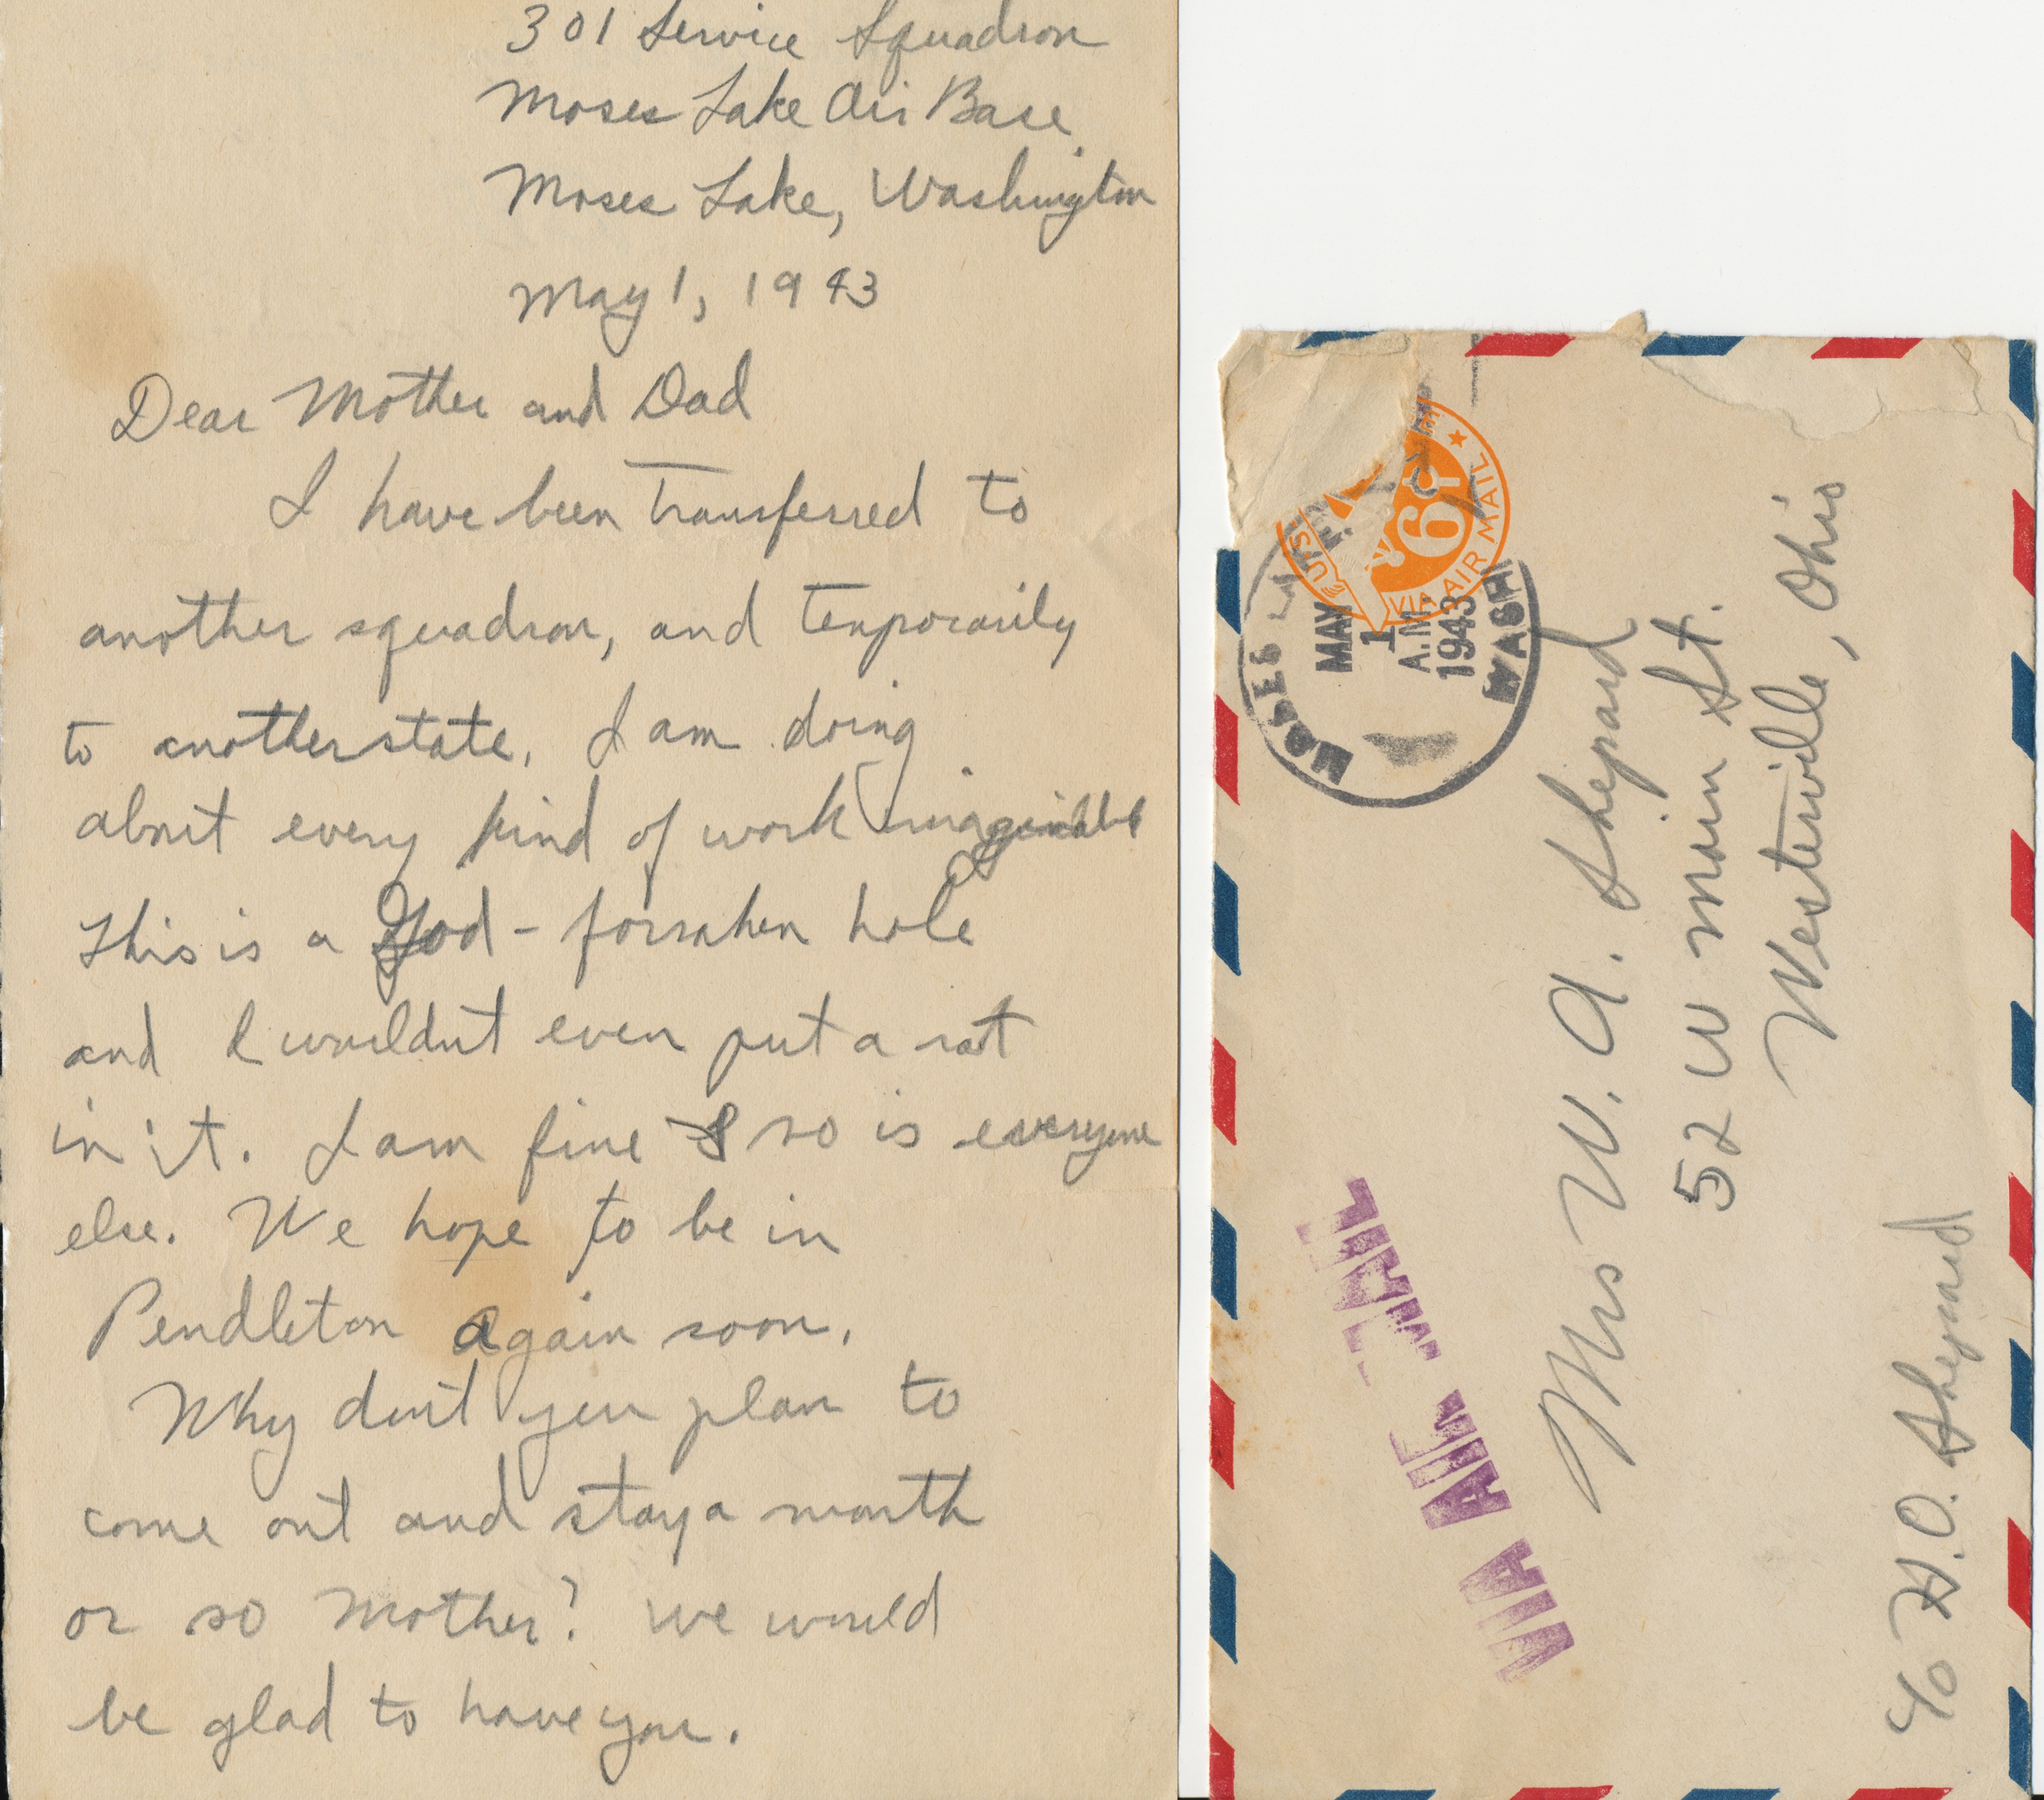 301 Service Squadron
Moses Lake Air Base
Moses Lake, Washington
May 1, 1943
Dear Mother and Dad
I have been transferred to
another squadron, and temporarily
to another state. I am doing
about every kind of work
This is a God-forsaken hole
and I wouldn't even put a rat
in it. I am fine & so is everyone
else. We hope to be in
Pendleton again soon.
Why don't you plan to
come out and stay a month
or so Mother? We would
be glad to have you.
MOSES LAKE
MAY
1
A.M.
1943
WASH
U.S.
6¢
VIA AIR MAIL
Mrs W. A. Shepard
52 W Main St.
Westerville, Ohio
c/o H.O. Shepard
VIA AIR MAIL